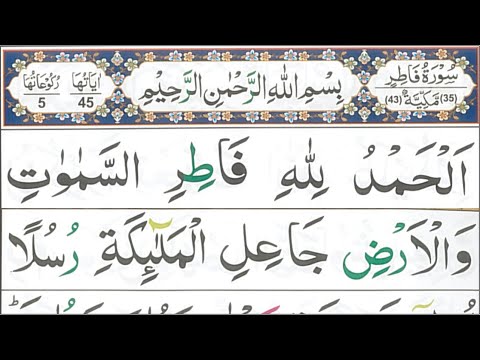 سُوْرَةُ فَاطِرٍ
(35) مَكِّيَّةٌ (43)
بِسْمِ اللّٰهِ الرَّحْمٰنِ الرَّحِيْمِ
اٰيَاتُهَا 45
رُكُوْعَاتُهَا 5
اَلْحَمْدُ لِلّٰهِ فَاطِرِ السَّمٰوٰتِ
وَالْاَرْضِ جَاعِلِ الْمَلٰٓئِكَةِ رُسُلًا